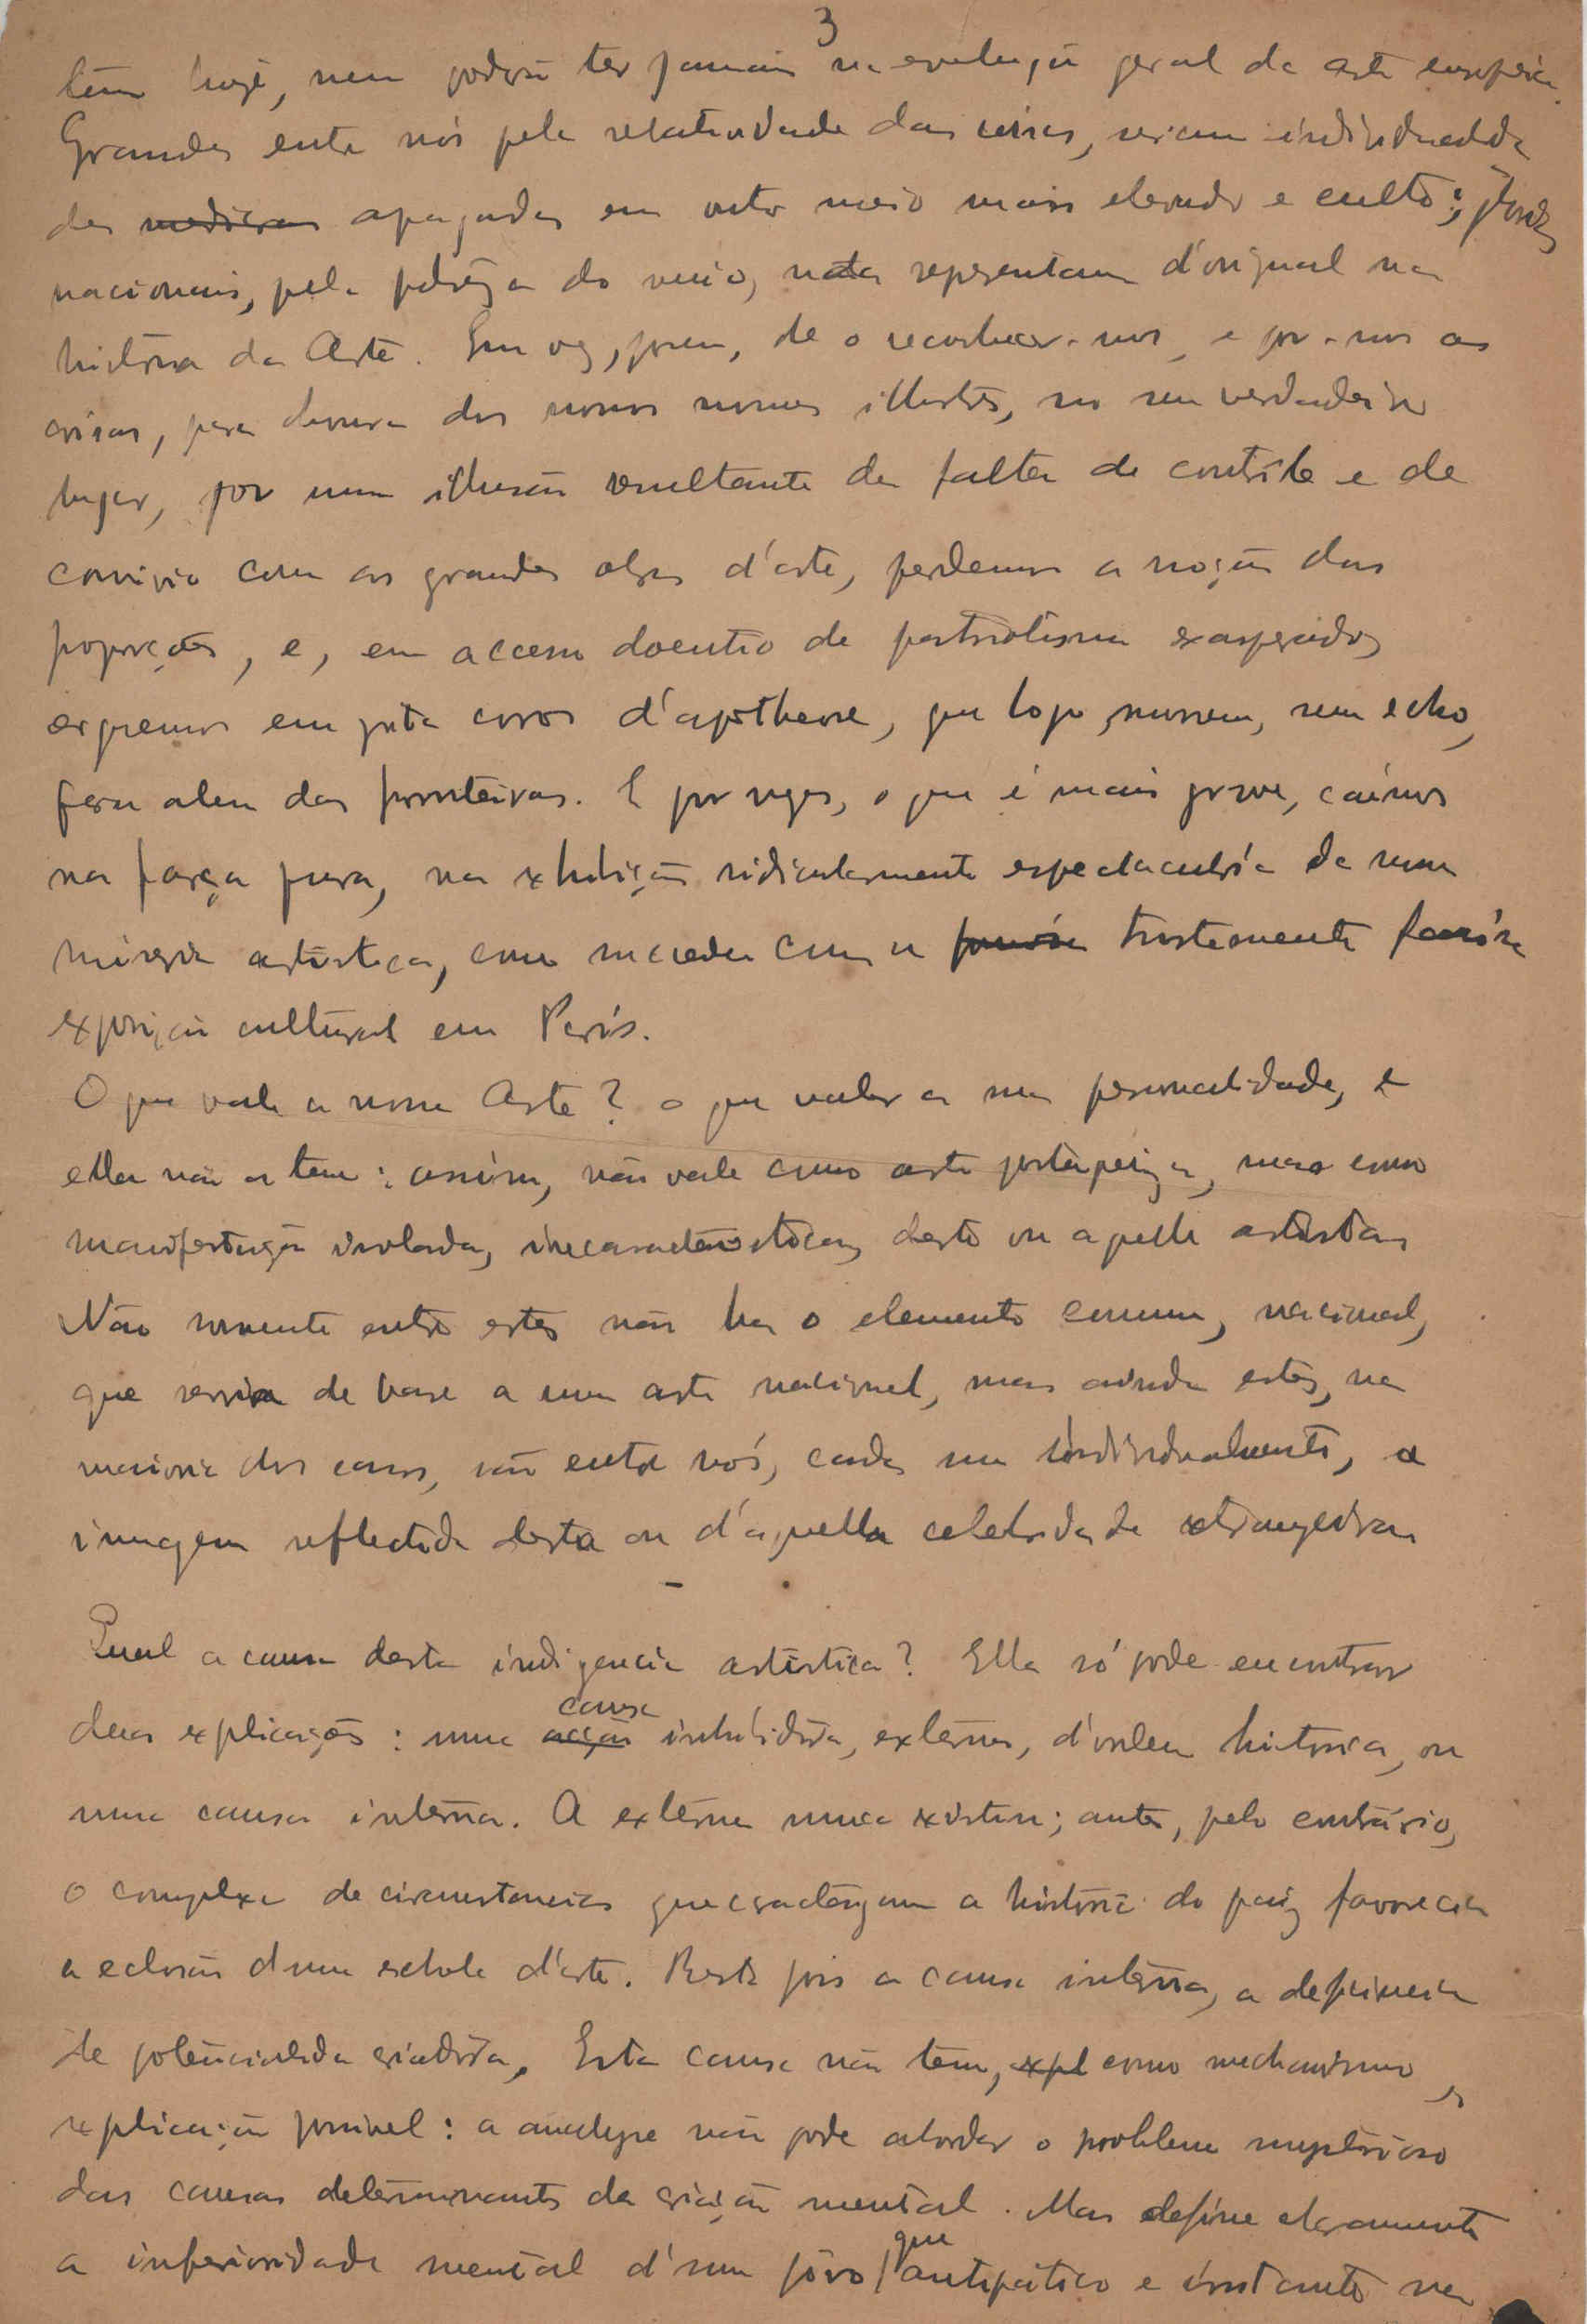 3
têm hoje, nem poderão ter jamais na evolução geral da arte europeia.
Grandes entre nós pela relatividade das coisas, seriam individualida
des mediocres apagadas em outro meio mais elevado e culto;
nacionais, pela pobreza do meio, nada representam d'original na
história da Arte. Em vez, porem, de o reconhecermos, e pormos as
coisas, para honra dos nossos nomes illustres, no seu verdadeiro
lugar, por uma illusão resultante da falta de contrôle e de
convivio com as grandes obras d'arte, perdemos a noção das
proporções, e, em accesso doentio de patriotismo exasperado,
erguemos em grita coros d'apotheose, que logo morrem, sem echo,
para alem das fronteiras. E por vezes, o que é mais grave, caímos
na farça pura, na exhibição ridiculamente espectaculosa da nossa
miseria artistica, como succedeu com a famosa tristemente famosa
exposição cultural em Paris.
O que vale a nossa Arte? o que valer a sua personalidade, e
ella não a tem: assim, não vale como arte portugueza, mas como
manifestação isolada, incaracteristica, deste ou aquelle artista.
Não somente entre estes não ha o elemento commum, nacional,
que servisse de base a uma arte nacional, mas ainda estes, na
maioria dos casos, são entre nós, cada um individualmente, a
imagem reflectida desta ou d'aquella celebridade extrangeira.
Qual a causa desta indigencia artistica? Ella só pode encontrar
duas explicações: uma acção causa inhibidora, externa, d'ordem historica, ou
uma causa interna. A externa nunca existiu; antes, pelo contrário,
o complexo de circunstancias que caracterizam a história do paiz favorecia
a eclosão d'uma eschola d'arte. Resta pois a causa interna, a deficiencia
de potencialidade criadora. Esta causa não tem, expl como mechanismo,
explicação possivel: a analyse não pode abordar o problema mysterioso
das causas determinantes da criação mental. Mas define claramente
a inferioridade mental d'um povo que antipático e